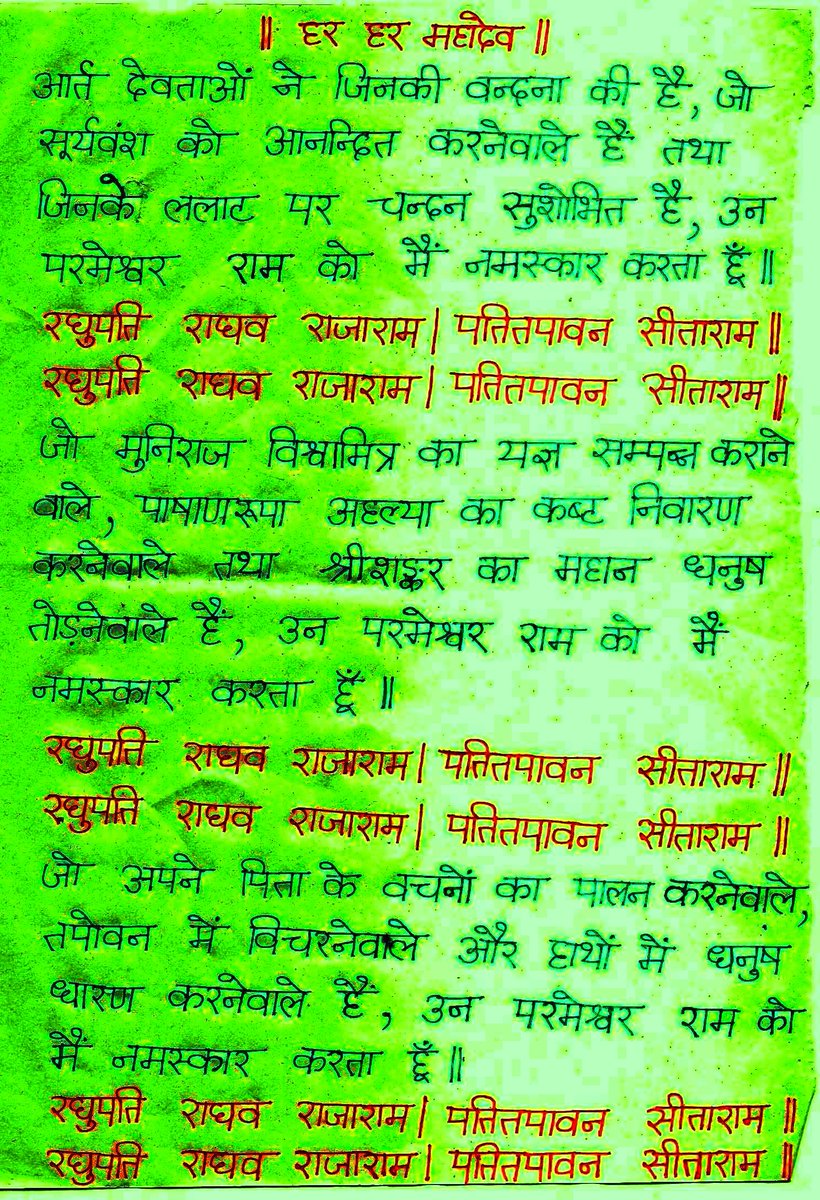 ॥ हर हर महादेव ॥
आर्त देवताओं ने जिनकी वन्दना की है, जो
सूर्यवंश को आनन्दित करनेवाले हैं तथा
जिनके ललाट पर चन्दन सुशोभित है, उन
परमेश्वर राम को मैं नमस्कार करता हूँ ॥
रघुपति राघव राजाराम | पतितपावन सीताराम ॥
रघुपति राघव राजाराम | पतितपावन सीताराम ॥
जो मुनिराज विश्वामित्र का यज्ञ सम्पन्न कराने
वाले, पाषाणरूपा अहल्या का कष्ट निवारण
करनेवाले तथा श्रीशङ्कर का महान धनुष
तोड़नेवाले हैं, उन परमेश्वर राम को मैं
नमस्कार करता हूँ ॥
रघुपति राघव राजाराम | पतितपावन सीताराम ॥
रघुपति राघव राजाराम | पतितपावन सीताराम ॥
जो अपने पिता के वचनों का पालन करनेवाले,
तपोवन में विचरनेवाले और हाथों में धनुष
धारण करनेवाले हैं, उन परमेश्वर राम को
मैं नमस्कार करता हूँ ॥
रघुपति राघव राजाराम | पतितपावन सीताराम ॥
रघुपति राघव राजाराम | पतितपावन सीताराम ॥